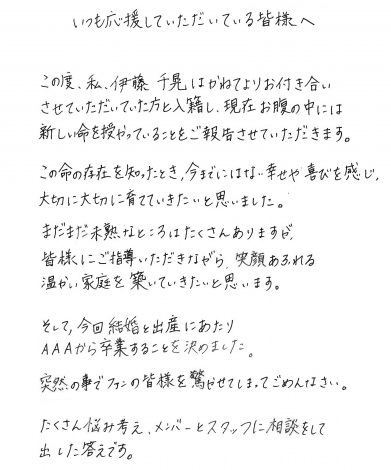 いつも応援していただいている皆様へ
この度、私、伊藤 千晃はかねてよりお付き合い
させていただいていた方と入籍し、現在お腹の中には
新しい命を授かっていることをご報告させていただきます。
この命の存在を知ったとき、今までにはない幸せや喜びを感じ、
大切に大切に育てていきたいと思いました。
まだまだ未熟なところはたくさんありますが、
皆様にご指導いただきながら、笑顔あふれる
温かい家庭を築いていきたいと思います。
そして、今回結婚と出産にあたり
AAAから卒業することを決めました。
突然の事でファンの皆様を驚かせてしまってごめんなさい。
たくさん悩み考え、メンバーとスタッフに相談をして
出した答えです。